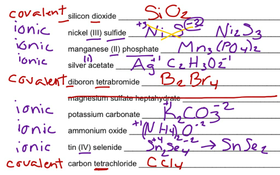 covalent silicon dioxide SiO2
ionic nickel (III) sulfide +3 Ni S (-2) Ni2S3
ionic manganese (II) phosphate Mn3(PO4)2
ionic silver (I) acetate Ag+1 C2H3O2-1
covalent diboron tetrabromide B2Br4
magnesium sulfate heptahydrate
ionic potassium carbonate +1 K2CO3-2
ionic ammonium oxide +1 (NH4)2O-2
ionic tin (IV) selenide Sn2Se4 → SnSe2
covalent carbon tetrachloride CCl4